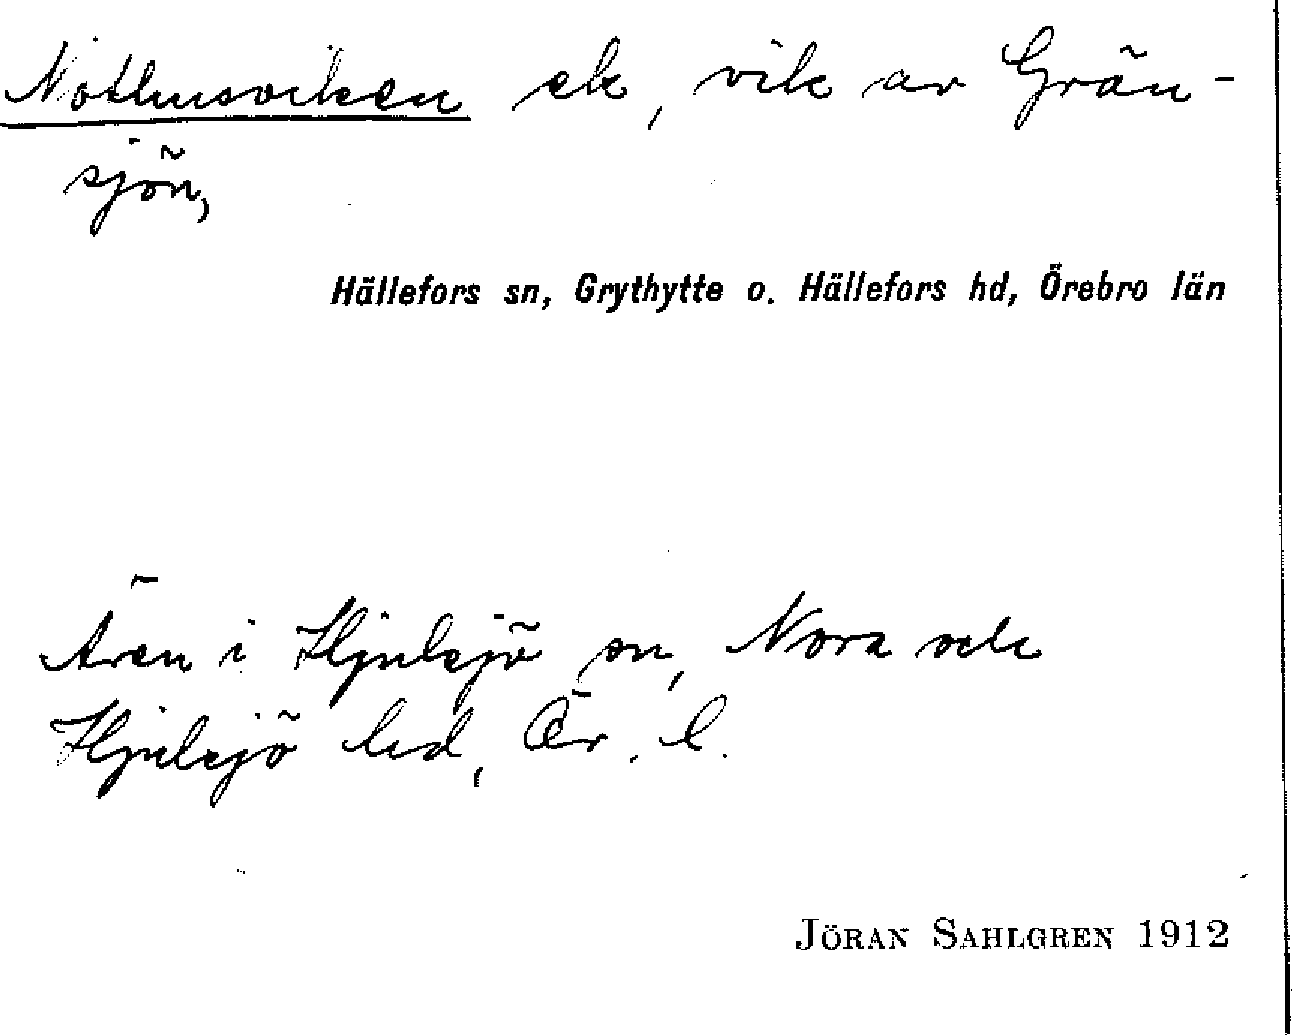 Nothusviken ek, vik av Grän-
sjön,
Hällefors sn, Grythytte o. Hällefors hd, Örebro län
Ären i Hjulsjö sn, Nora och
Hjulsjö hd, Ör. l.
JÖRAN SAHLGREN 1912